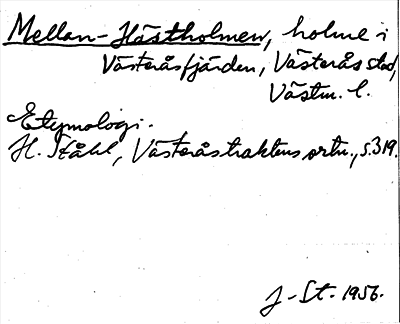 Mellan-Hästholmen, holme i
Västeråsfjärden, Västerås stad,
Västm. l.
Etymologi.
H. Ståhl, Västeråstraktens ortn., s. 319.
J-St. 1956.